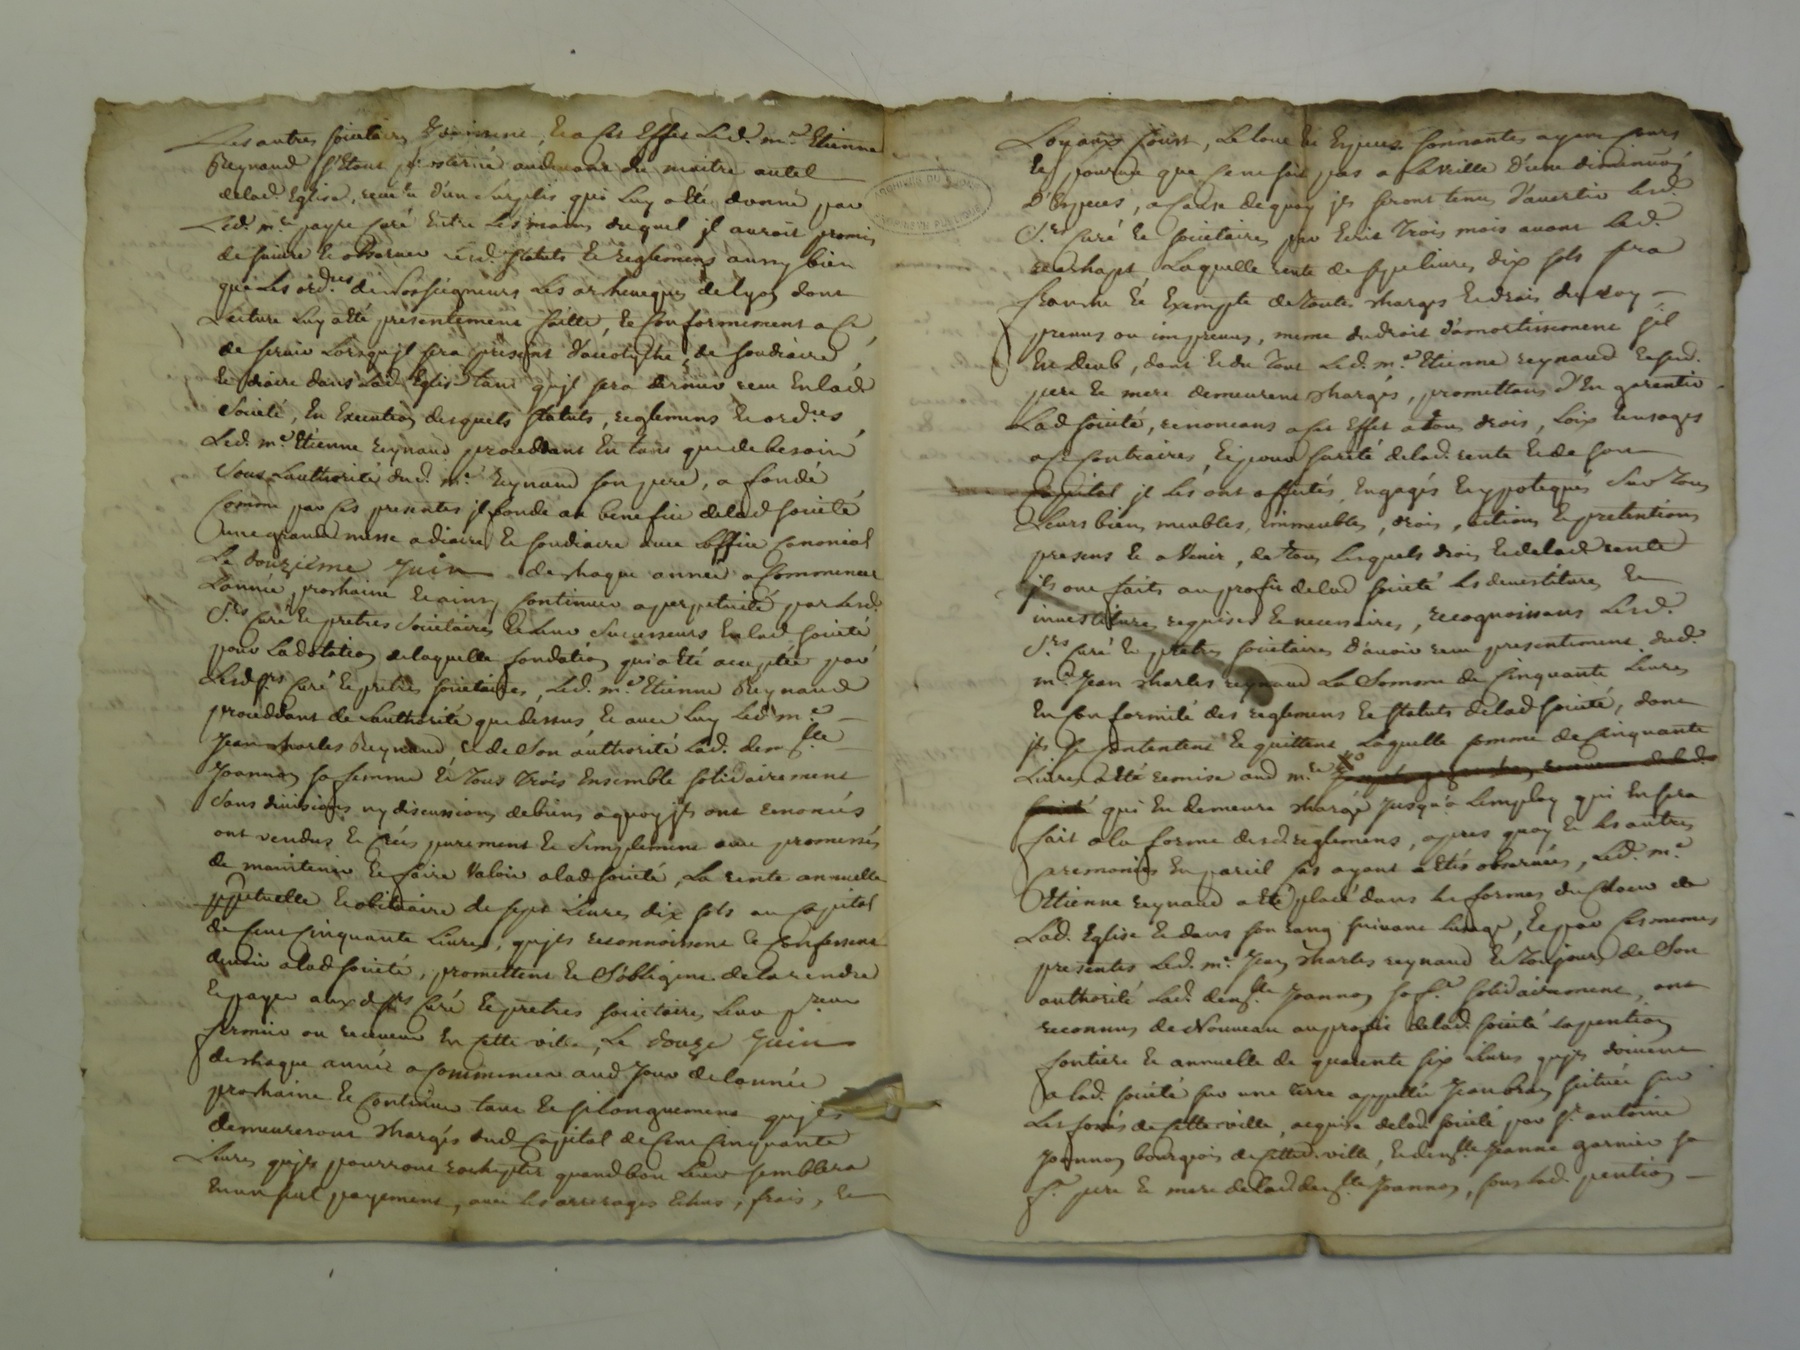 Les autres sociétaires jouissent, Et a cet Effet Led. mre Etienne
Reynaud s'Etant prosterné audevant du maitre autel
delad. Eglise, revetu d'un surplis qui Luy a été donné par
Led. mre payre Curé Entre Les mains duquel jl auroit promis
de suivre et observer Lesd. statuts Et reglemens aussy bien
que Les ordces de Nosseigneurs Les archeveques de Lyon dont
Lecture Luy a été presentement faitte, Et Conformement a Ce
de servir Lorsqu'jl sera présent d'acolythe, de soudiacre,
Et diacre dans Lad. Eglise tant qu'jl sera dernier receu En lad.
Societé, En Execution desquels statuts, reglemens Et ordces,
Led. mre Etienne reynaud proceddant En tant que de besoin
Sous L'authorité dud. mre Reynaud son pere, a fondé
Comme par Ces presentes jl fonde au benefice delad. societé
une grande messe a diacre Et soudiacre avec L'office Canonial
Le douzième Juin de chaque année a Commencer
L'année prochaine Et ainsy Continuer a perpetuité par Lesd.
Srs Curé Et pretres Societaires Et Leur Successeurs En lad. societé
pour La dotation de laquelle fondation qui a été acceptée par
Lesd. srs Curé Et pretres societaires, Led. mre Etienne Reynaud
proceddant de L'authorité que dessus Et avec Luy Led. mre
Jean Charles Reynaud Et de Son authorité Lad. demlle
Joannon sa femme Et tous trois Ensemble solidairement
Sans division ny discussion de biens a quoy jls ont renoncés
ont vendus Et Créés purement Et Simplement avec promesses
de maintenir Et faire Valoir a lad. societé, La rente annuelle
perpetuelle Et obituaire de sept Livres dix sols au Capital
de Cent Cinquante Livres, qu'jls reconnoissent Et Confessent
devoir a lad. societé, promettent Et S'obligent de la rendre
Et payer auxd. srs Curé Et pretres societaires, Leur preur
fermier ou receveur En Cette ville, Le douze Juin
de chaque année a Commencer aud. Jour de L'année
prochaine Et Continuer tant Et si Longuement qu'jls
demeureront Chargés dud. Capital de Cent Cinquante
Livres qu'jls pourront rachepter quand bon Leur semblera
En un seul payement, avec Les arrerages Echus, frais, Et
Loyaux Cousts, Le tout En Especes sonnantes ayant Cours
Et pourvu que Ce ne soit pas a La Veille D'une diminution
D'Especes, a Cause de quoy jls seront tenus D'avertir Lesd.
Srs Curé Et societaires par Ecrit Trois mois avant Led.
rachapt, Laquelle rente de sept livres dix sols sera
franche Et Exempte de toutes Charges Et droits du roy
prevus ou imprevus, meme du droit d'amortissement s'il
En Deub, dont Et du tout Led. mre Etienne reynaud Et sesd.
pere Et mere demeurent Chargés, promettans d'En garentir
Lad. societé, renoncans a Cet Effet a tous droits, Loix Et usages
a Ce Contraires, Et pour sureté delad. rente Et de son
Capital jls Les ont affectés, Engagés Et ypotequés Sur tous
Leurs biens meubles, immeubles, droits, actions Et pretentions
presens Et a Venir, de tous Lesquels droits Et delad. rente
jls ont faits au profit delad. societé Les devestitures Et
investitures requises Et necessaires, recognoissans Lesd.
Srs Curé Et pretres societaires D'avoir receu presentement dud.
mre Jean Charles reynaud La Somme de Cinquante Livres
En Conformité des reglemens Et statuts delad. societé, dont
jls se Contentent Et quittent, Laquelle somme de Cinquante
Livres a été remise aud. mre
qui En demeure Chargé Jusqu'a L'employ qui En sera
fait a la forme desd. reglemens, apres quoy Et Les autres
Ceremonies En pareil Cas ayant étés observées, Led. mre
Etienne reynaud a été placé dans Les formes du Choeur de
Lad. Eglise Et dans son rang suivant L'usage, Et par Ces memes
presentes Led. mre Jean Charles reynaud Et toujours de Son
authorité Lad. demlle Joannon sa fe solidairement, ont
reconnus de Nouveau au profit delad. societé La pention
fontiere Et annuelle de quarente six Livres qu'jls doivent
a lad. societé sur une terre appellée Jeanbran scituée sur
Les fossés de Cette ville, acquise delad. societé par sr antoine
Joannon bourgeois de Cetted. ville, Et demlle Jeanne garnier sa
fe pere Et mere delad. demlle Joannon, sous Lad. pention